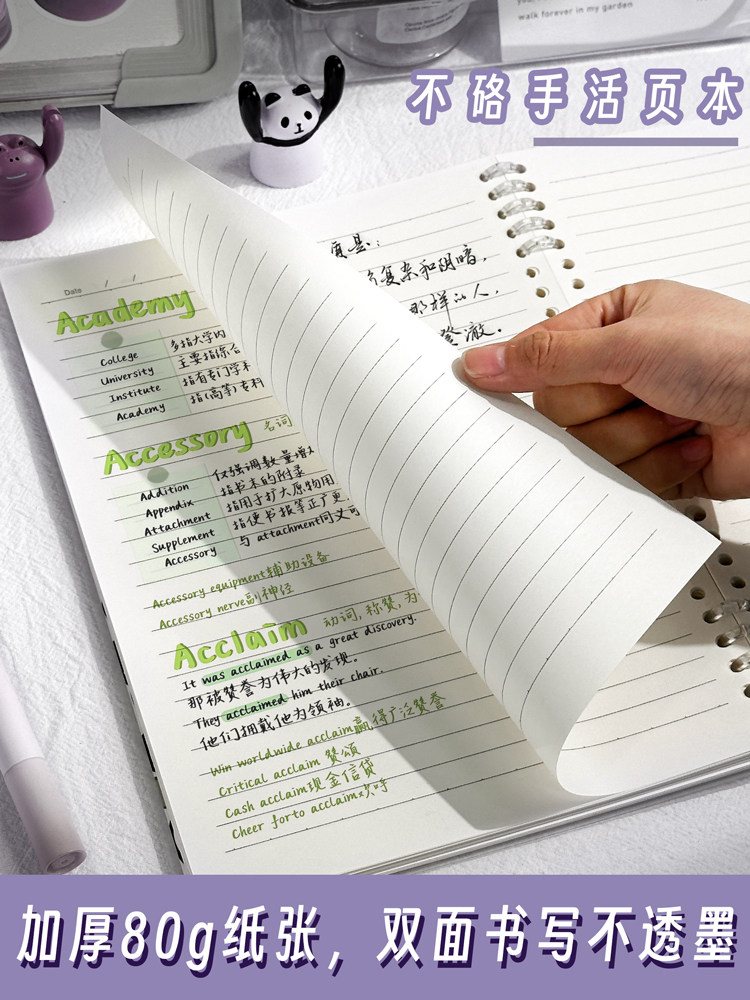 walk forever in my garden
不硌手活页本
Date / /
Academy
College 多指大学内
University 主要指综合
Institute 指有专门学术
Academy 指(高等)专科
Accessory 名词
Addition 仅强调数量增
Appendix 指书末的附录
Attachment 指用于扩大原物用
Supplement 指使书报等正产更
Accessory 与attachment同义可
Accessory equipment辅助设备
Accessory nerve副神经
Acclaim 动词,称赞,为
It was acclaimed as a great discovery.
那被赞誉为伟大的发现。
They acclaimed him their chair.
他们拥戴他为领袖。
Win worldwide acclaim赢得广泛赞誉
Critical acclaim 赞颂
Cash acclaim现金信贷
Cheer forto acclaim
复杂和阴暗,
那样的人,
澈。
加厚80g纸张,双面书写不透墨